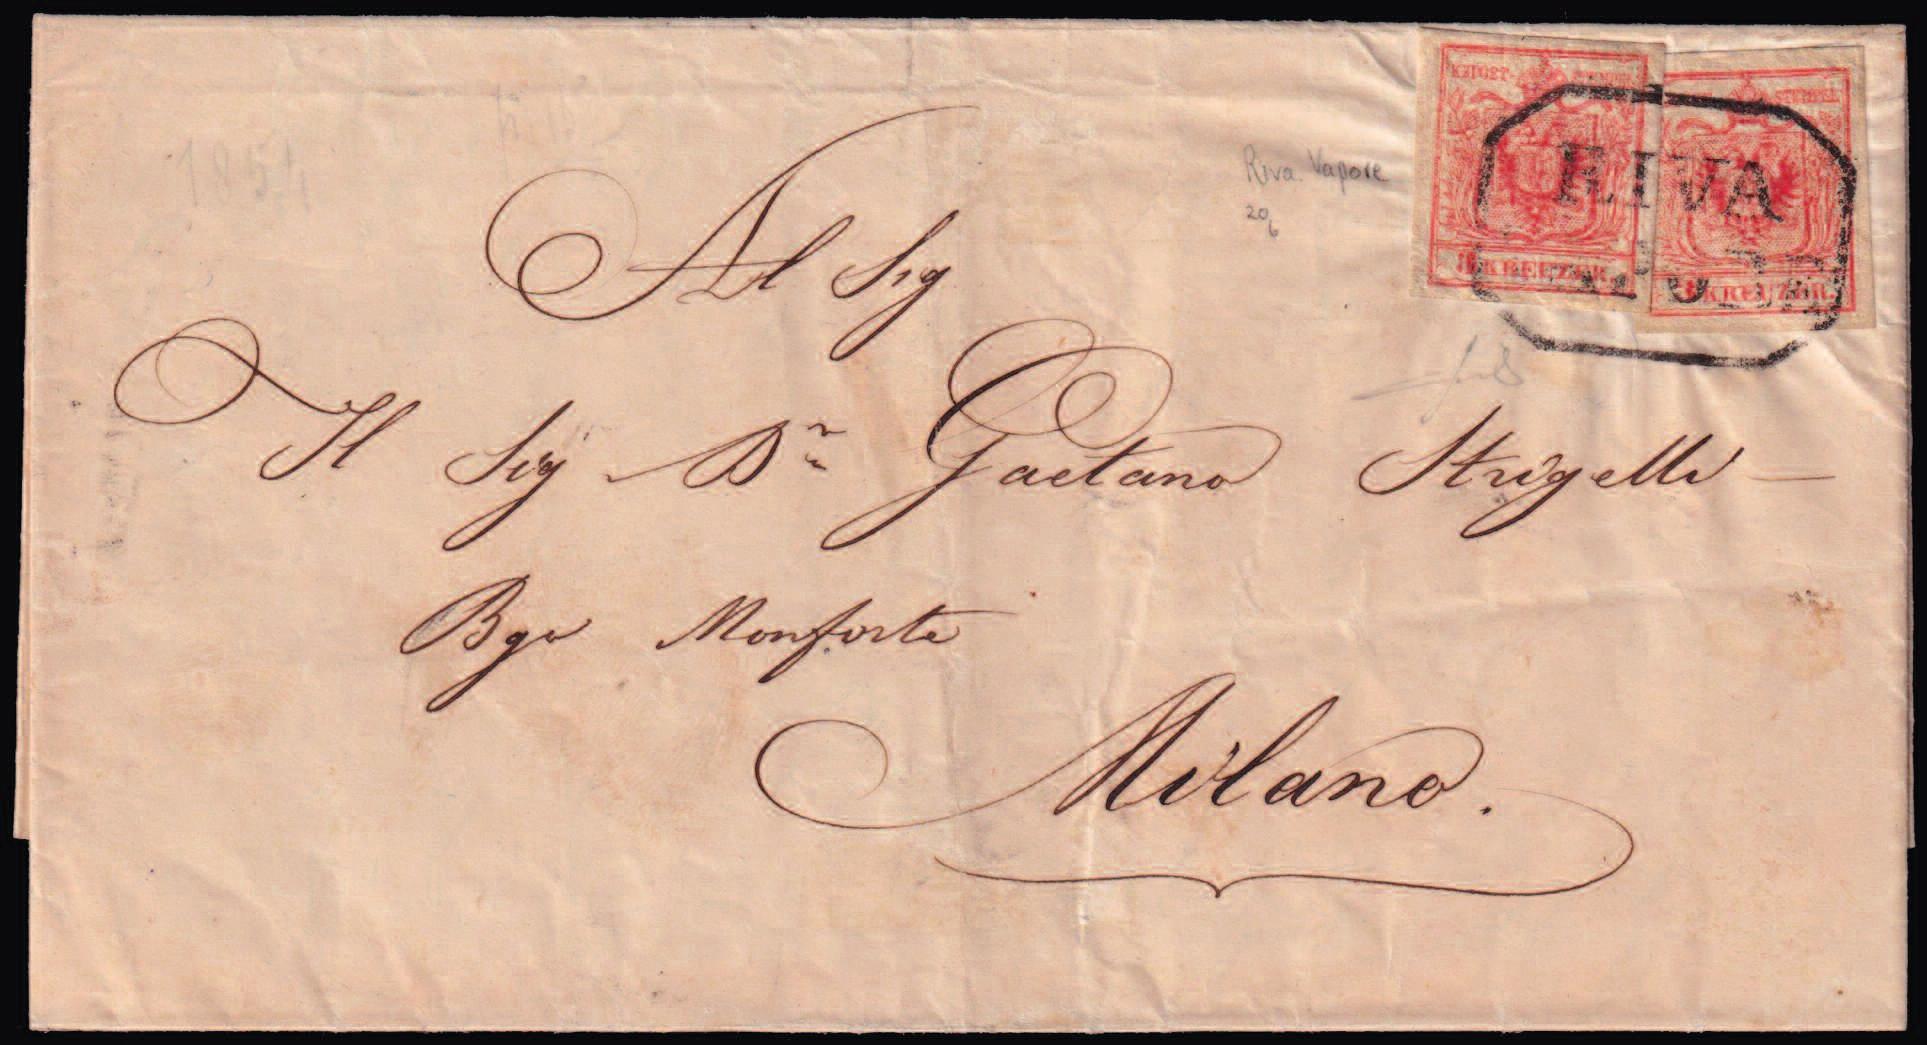 1854
Riva. Vapore
20
6
KKPOST-STEMPEL
3 KREUZER.
STEMPEL
3 KREUZER.
RIVA
VAPORE
Al Sig
Il Sig Dr Gaetano Strigelli
Bgo Monforte
Milano.